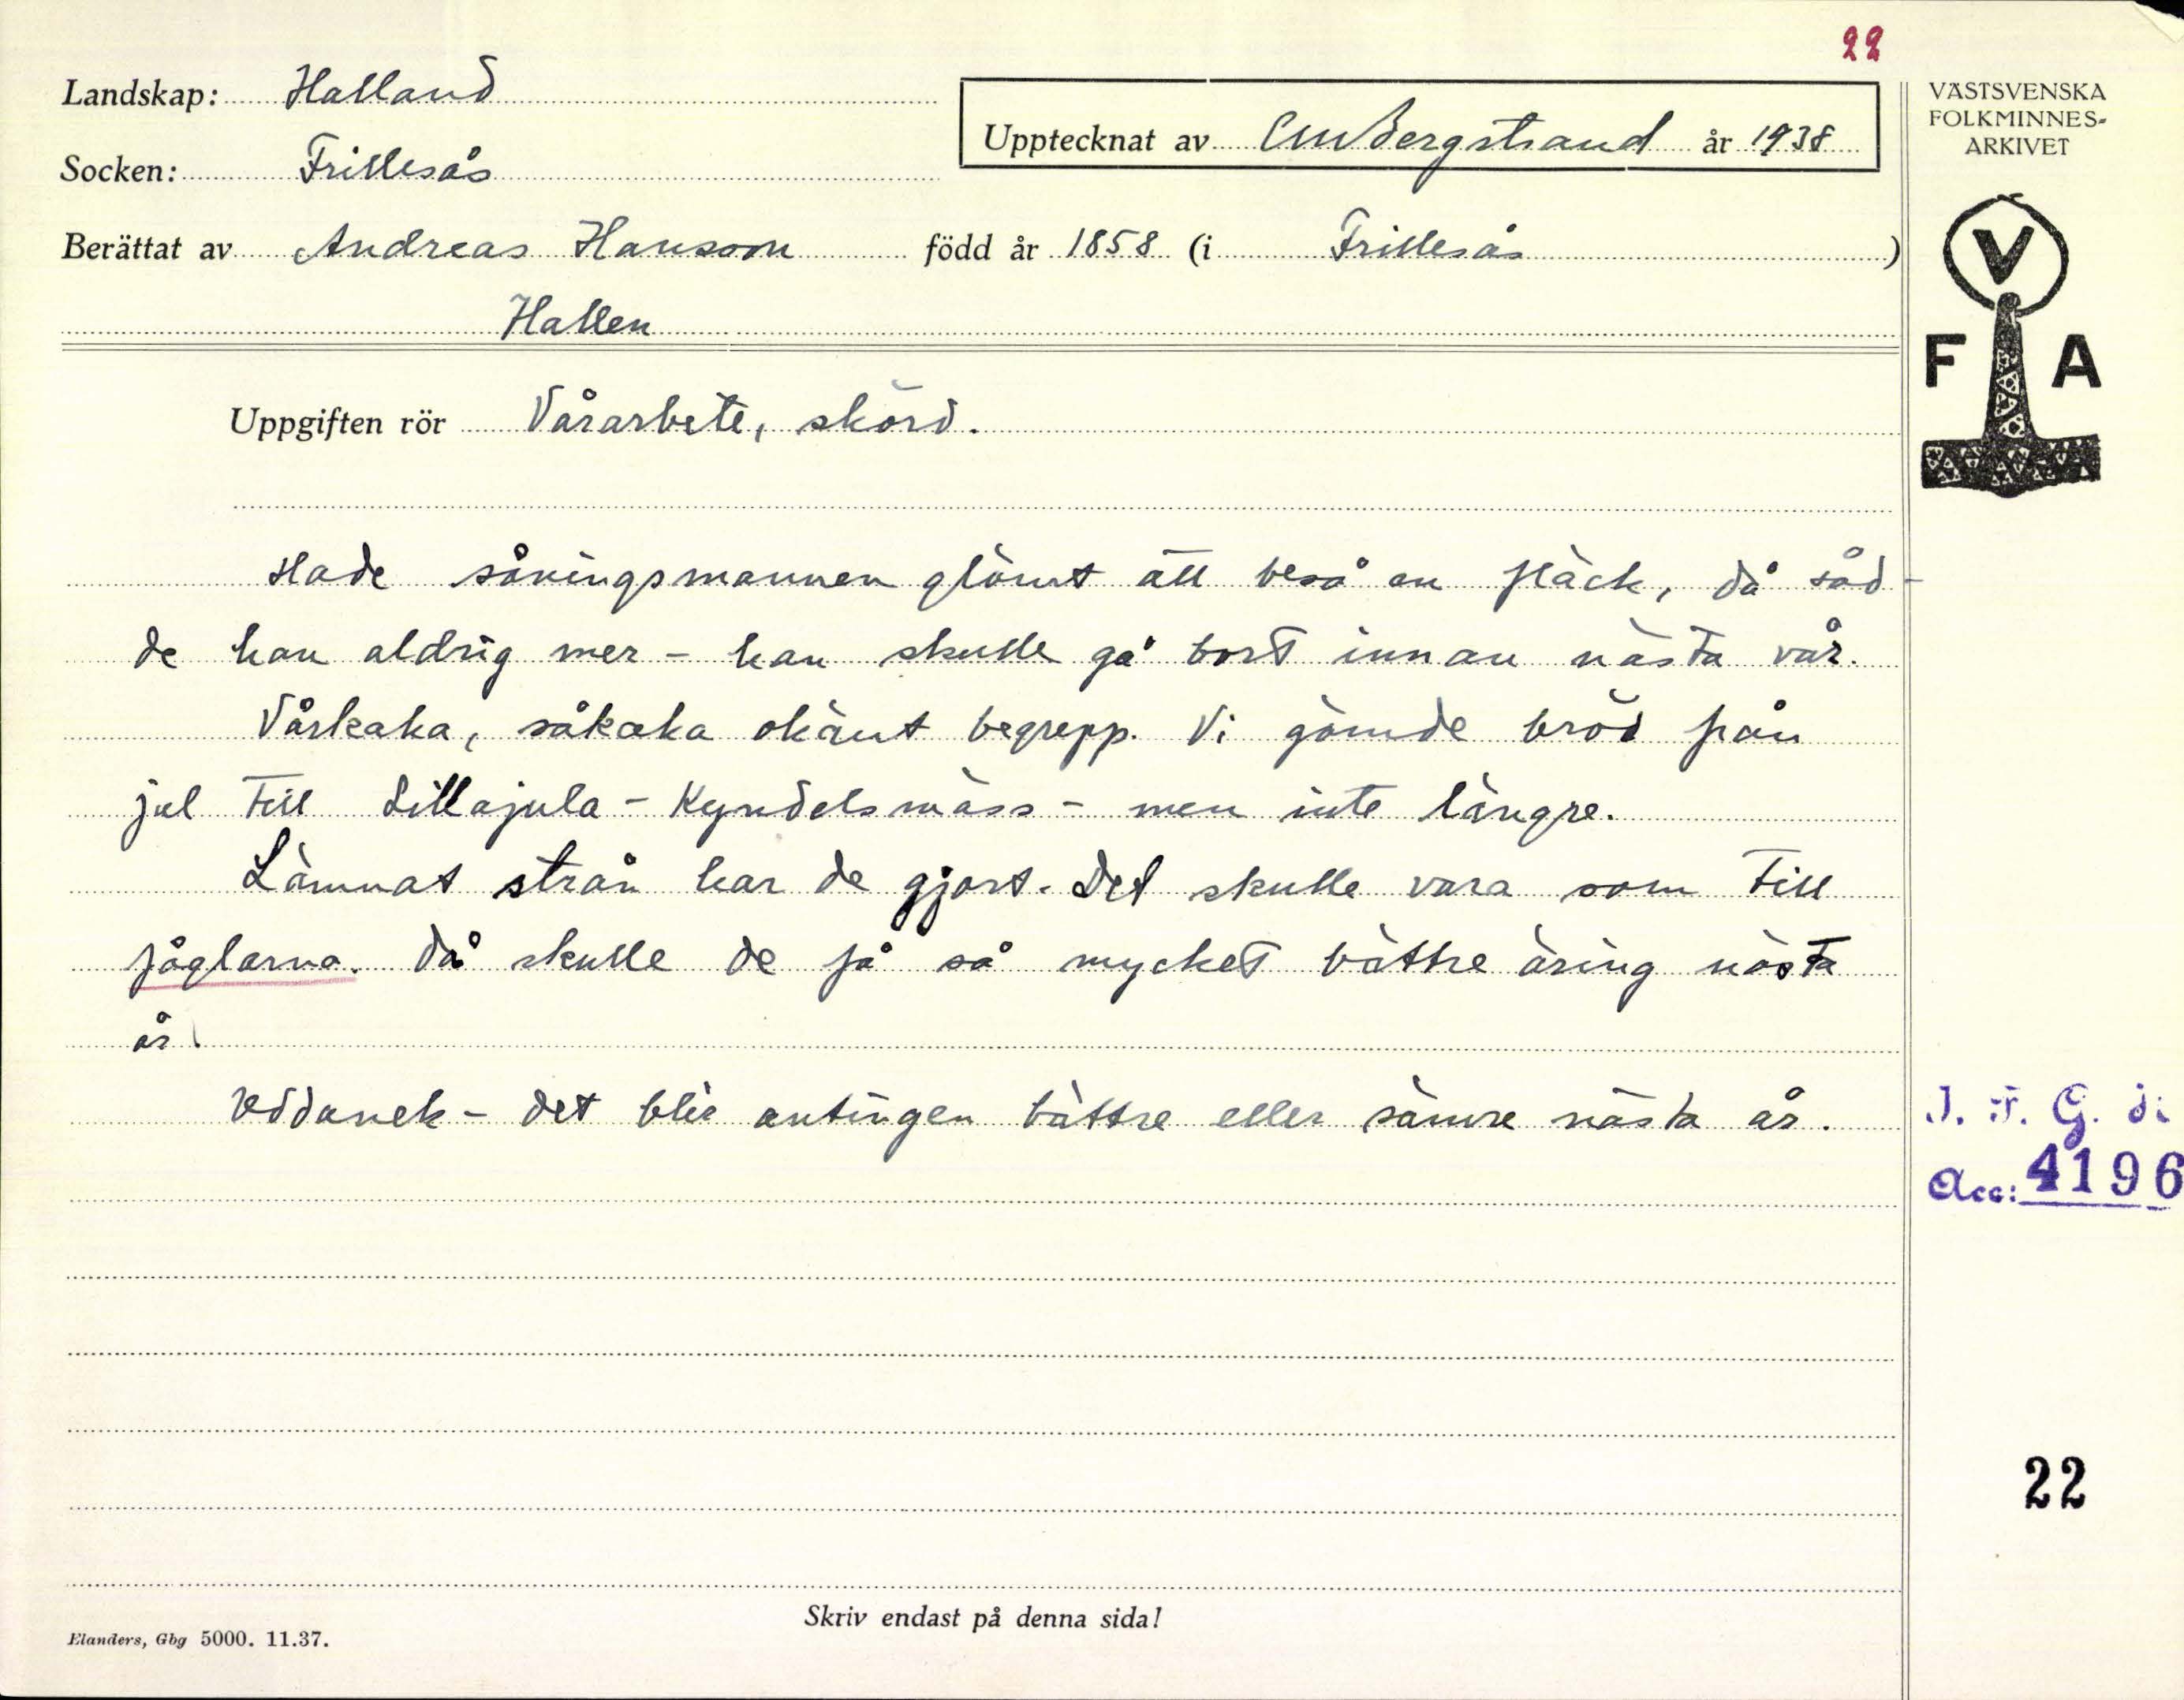 22
Landskap: Halland
Upptecknat av CMBergstrand år 1938
Socken: Frillesås
Berättat av Andreas Hansson född år 1858 (i Frillesås)
Hallen
VÄSTSVENSKA
FOLKMINNES-
ARKIVET
V
F A
Uppgiften rör Vårarbete, skörd.
Hade såningsmannen glömt att beså en fläck, då såd-
de han aldrig mer - han skulle gå bort innan nästa vår.
Vårkaka, såkaka okänt begrepp. Vi gömde bröd från
jul till Lillajula - Kyndelsmäss - men inte längre.
Lämnat strån har de gjort. Det skulle vara som till
fåglarna. Då skulle de få så mycket bättre äring nästa
år.
Uddanek - det blir antingen bättre eller sämre nästa år.
I. F. G. s:
Acc: 4196
22
Skriv endast på denna sida!
Elanders, Gbg 5000. 11.37.